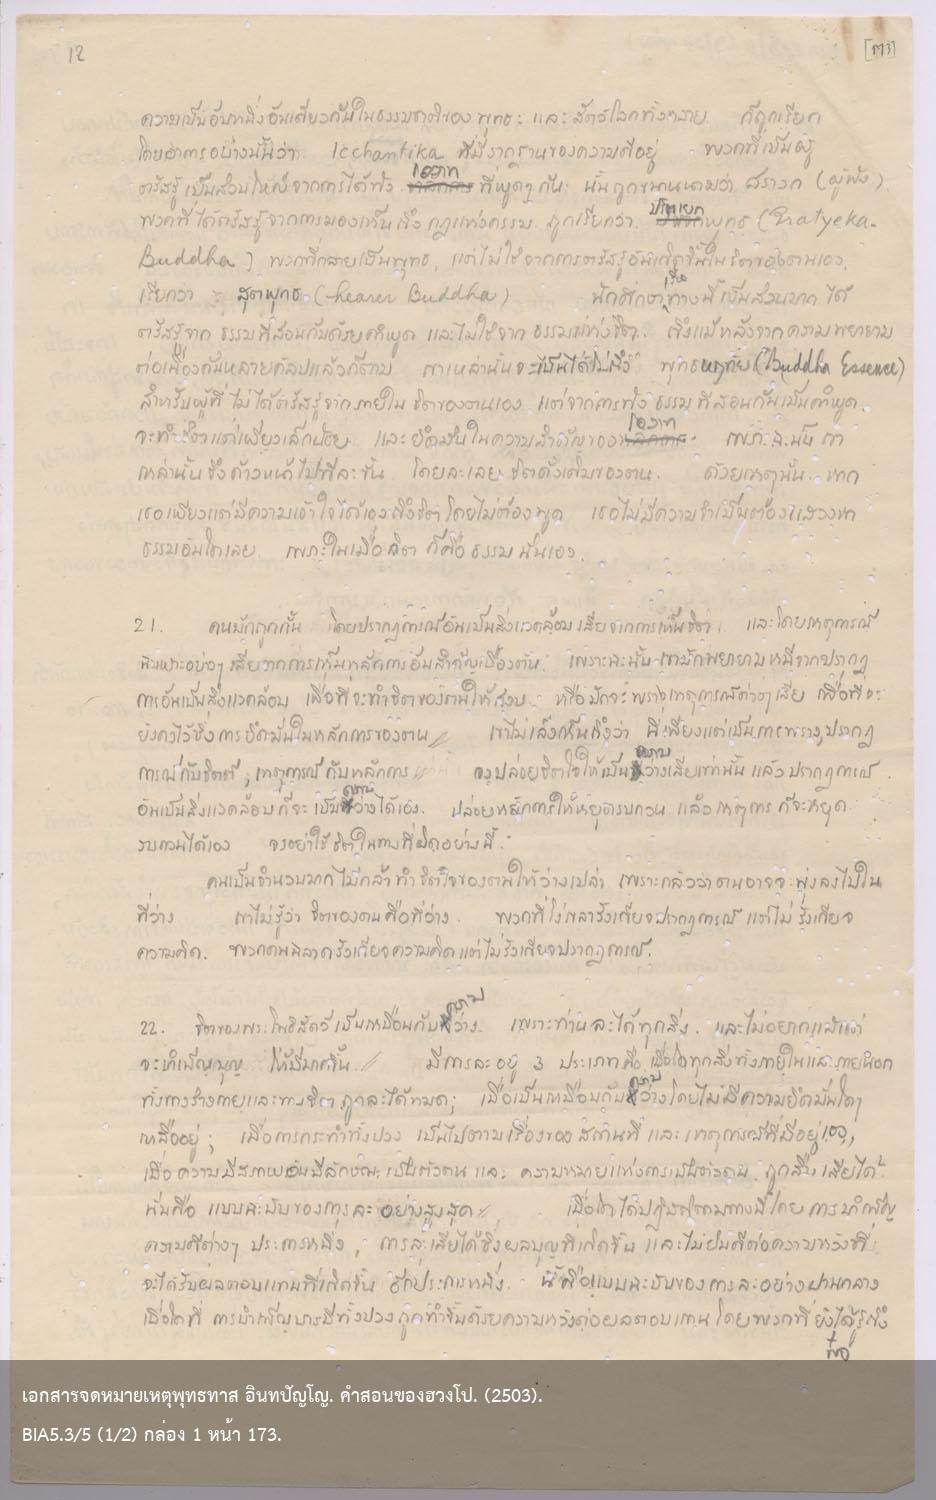 12
[๓3]
ความเป็นอันหนึ่งอันเดียวกันในธรรมชาติของพุทธะ และสัตว์โลกทั้งหลาย ก็ถูกเรียก
โดยอาการอย่างนั้นว่า Icchantika ที่มีรากฐานของความดีอยู่ พวกที่เป็นผู้
ตรัสรู้เป็นส่วนใหญ่จากการได้ฟัง โอวาท ที่พูดๆกัน นั้นถูกขนานนามว่า สราวก (ผู้ฟัง)
พวกที่ได้ตรัสรู้จากการมองเห็นถึงกฎแห่งกรรม ถูกเรียกว่า ปัตเยกพุทธ (Pratyeka-
Buddha) พวกที่กลายเป็นพุทธะ แต่ไม่ใช่จากการตรัสรู้อันเกิดขึ้นในจิตของตนเอง,
เรียกว่า สุตพุทธ (hearer Buddha) นักศึกษาทางนี้เป็นส่วนมาก ได้
ตรัสรู้จาก ธรรมที่สอนกันด้วยคำพูด และไม่ใช่จาก ธรรมแห่งจิต. ถึงแม้หลังจากความพยายาม
ต่อเนื่องกันหลายกัลปแล้วก็ตาม เขาเหล่านั้นจะเป็นได้ไม่ถึง พุทธหฤทัย (Buddha Essence)
สำหรับผู้ที่ไม่ได้ตรัสรู้จากภายใน จิตของตนเอง แต่จากการฟัง ธรรมที่สอนกันเป็นคำพูด.
จะทำจิตแต่เพียงเล็กน้อย และยึดมั่นในความสำคัญของโอวาท เพราะฉะนั้น เขา
เหล่านั้นจึงก้าวหน้าไปทีละขั้น โดยละเลย จิตดั้งเดิมของตน. ด้วยเหตุนั้น หาก
เธอเพียงแต่มีความเข้าใจได้เองถึงจิต โดยไม่ต้องพูด เธอไม่มีความจำเป็นต้องแสวงหา
ธรรมอันใดเลย เพราะในเมื่อจิต ก็คือ ธรรม นั่นเอง.
21. คนมักถูกกั้น โดยปรากฏการณ์อันเป็นสิ่งแวดล้อมเสียจากการเห็นจิต, และโดยเหตุการณ์
เฉพาะอย่างๆ เสียจากการเห็นหลักการอันสำคัญเบื้องต้น. เพราะฉะนั้น เขามักพยายามหนีจากปรากฏ
การอันเป็นสิ่งแวดล้อม เพื่อที่จะทำจิตของตนให้สงบ หรือมักจะพรางเหตุการณ์ต่างๆเสีย เพื่อที่จะ
ยังคงไว้ซึ่งการยึดมั่นในหลักการของตน // เขาไม่เล็งเห็นถึงว่า นี่เพียงแต่เป็นการพรางปรากฏ
การณ์กับจิต, เหตุการณ์กับหลักการ // จงปล่อยจิตใจให้เป็นความว่างเสียเท่านั้น แล้วปรากฏการณ์
อันเป็นสิ่งแวดล้อมก็จะเป็นความว่างได้เอง. ปล่อยหลักการให้หยุดรบกวน แล้วเหตุการก็จะหยุด
รบกวนได้เอง จงอย่าใช้จิตในทางที่ผิดอย่างนี้.
คนเป็นจำนวนมากไม่กล้าทำจิตใจของตนให้ว่างเปล่า เพราะกลัวว่าตนอาจจะพุ่งลงไปใน
ที่ว่าง เขาไม่รู้ว่า จิตของตนคือที่ว่าง. พวกที่โง่เขลารังเกียจปรากฏการณ์ แต่ไม่รังเกียจ
ความคิด. พวกคนฉลาดรังเกียจความคิดแต่ไม่รังเกียจปรากฏการณ์.
22. จิตของพระโพธิสัตว์เป็นเหมือนกับความว่าง. เพราะท่านละได้ทุกสิ่ง. และไม่อยากแม้แต่
จะบำเพ็ญบุญ ให้มีมากขึ้น // มีการละอยู่ 3 ประเภทคือ เมื่อใดทุกสิ่งทั้งภายในและภายนอก
ทั้งทางร่างกายและทางจิต ถูกละได้หมด; เมื่อเป็นเหมือนกับความว่างโดยไม่มีความยึดมั่นใดๆ
เหลืออยู่; เมื่อการกระทำทั้งปวง เป็นไปตามเรื่องของ สถานที่ และเหตุการณ์ที่มีอยู่เอง,
เมื่อ ความมีสภาพอันมีลักษณะเป็นตัวตน และ ความหมายแห่งการเป็นตัวตน ถูกลืมเสียได้
นั่นคือ แบบฉบับของการละ อย่างสูงสุด // เมื่อใดได้ปฏิบัติตามทางนี้โดย การบำเพ็ญ
ความดีต่างๆ ประการหนึ่ง, การละเสียได้ซึ่งผลบุญที่เกิดขึ้น และไม่ยินดีต่อความหวังที่
จะได้รับผลตอบแทนที่เกิดขึ้น อีกประการหนึ่ง. นี้คือแบบฉบับของการละอย่างปานกลาง
เมื่อใดที่ การบำเพ็ญบารมีทั้งปวง ถูกทำขึ้นด้วยความหวังต่อผลตอบแทน โดยพวกที่ ยังได้รู้ถึง
เอกสารจดหมายเหตุพุทธทาส อินทปัญโญ. คำสอนของฮวงโป. (2503).
BIA5.3/5 (1/2) กล่อง 1 หน้า 173.